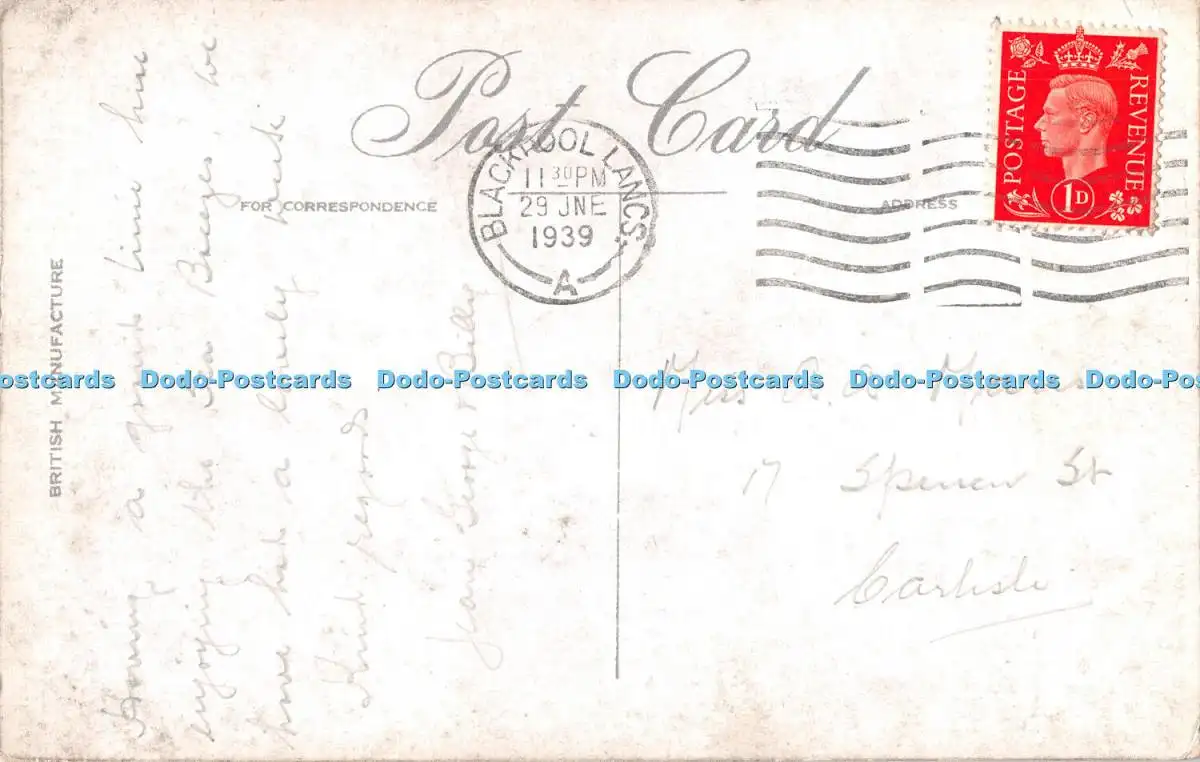 Post Card
FOR CORRESPONDENCE
ADDRESS
BRITISH MANUFACTURE
BLACKPOOL LANCS.
11 30 PM
29 JNE
1939
A
POSTAGE
REVENUE
1D
Having a Grand time here
enjoying the Sea Breezes we
have had a lovely week
Kind regards
Jean George & Billy
Miss
17 Spencer St
Carlisle
ostcards Dodo-Postcards Dodo-Postcards Dodo-Postcards Dodo-Postcards Dodo-Post